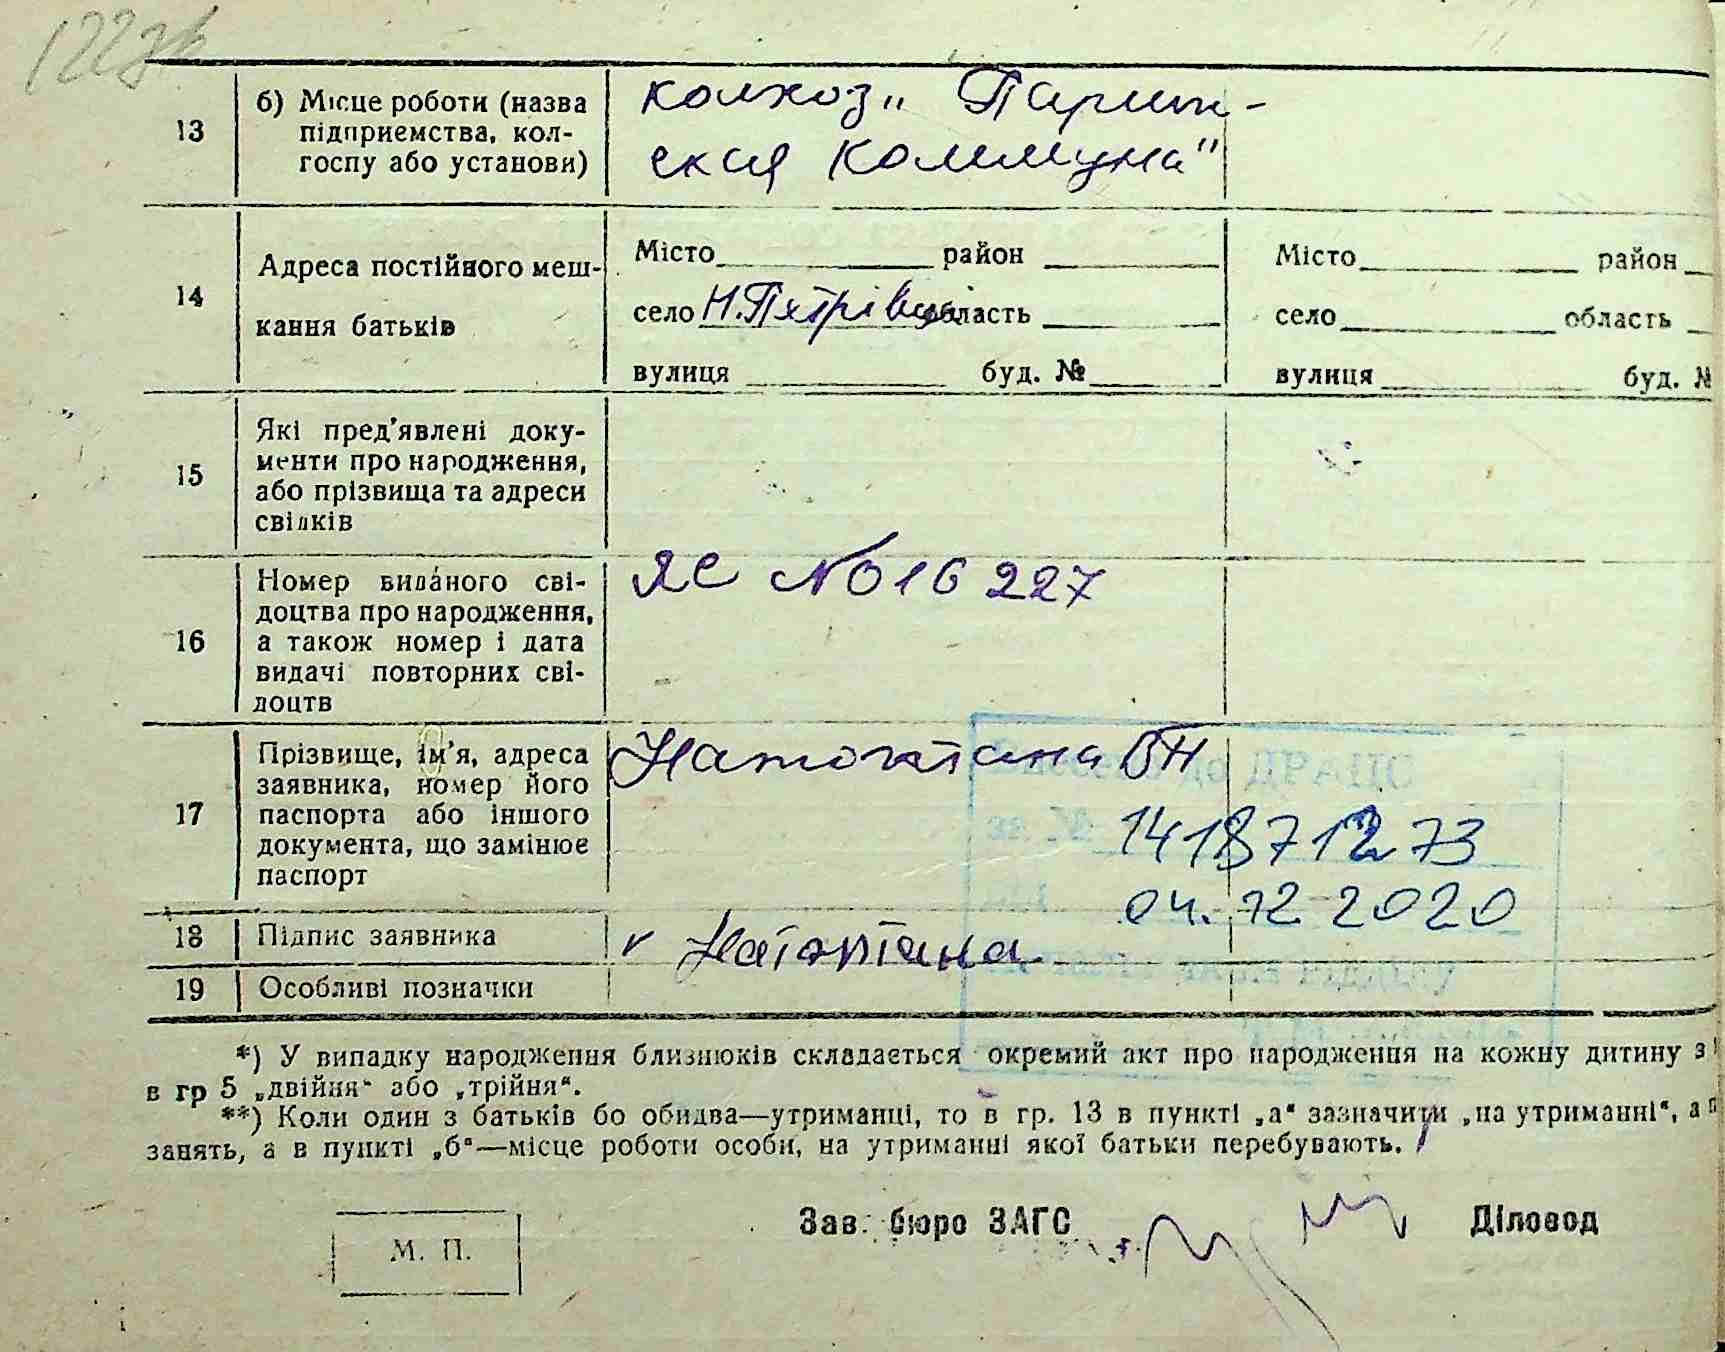 122
13
б) Місце роботи (назва
підприємства, кол-
госпу або установи)
колхоз „Париж-
ская Коммуна"
14
Адреса постійного меш-
кання батьків
Місто район
село Н.Петрівці область
вулиця буд. №
Місто район
село область
вулиця буд. №
15
Які пред'явлені доку-
менти про народження,
або прізвища та адреси
свідків
16
Номер виданого сві-
доцтва про народження,
а також номер і дата
видачі повторних сві-
доцтв
ЯС №016227
17
Прізвище, ім'я, адреса
заявника, номер його
паспорта або іншого
документа, що замінює
паспорт
до ДРАЦС
за №
141871273
від 04.12 2020
18
Підпис заявника
19
Особливі позначки
*) У випадку народження близнюків складається окремий акт про народження на кожну дитину з
в гр 5 „двійня" або „трійня".
**) Коли один з батьків бо обидва—утриманці, то в гр. 13 в пункті „а" зазначити „на утриманні", а
занять, а в пункті „б"—місце роботи особи, на утриманні якої батьки перебувають.
Зав. бюро ЗАГС
Діловод
М. П.